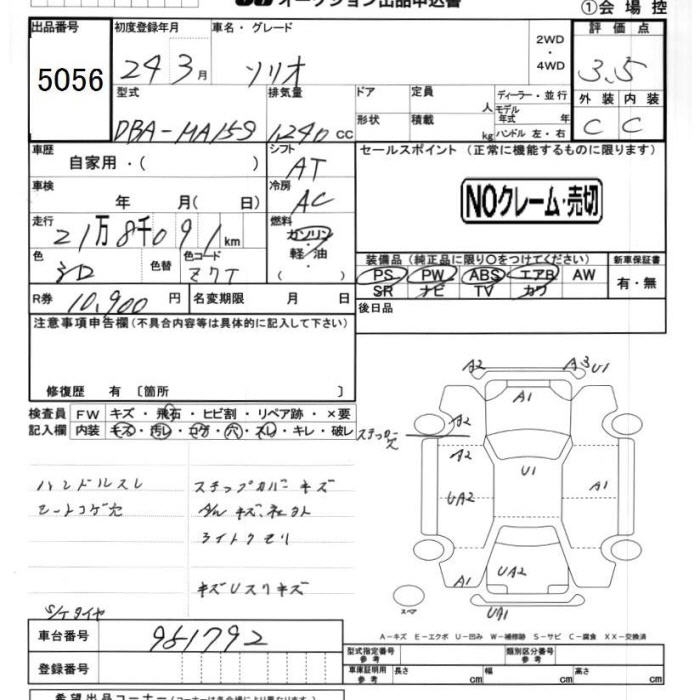 オークション出品申込書
①会 場 控
出品番号 初度登録年月 車名・グレード 2WD・4WD 評 価 点
5056 24年 3月 ソリオ 3.5
型式 排気量 ドア 定員 人 ディーラー・並行 外 装 内 装
DBA-MA15S 1,240 CC 形状 積載 kg モデル年式 年 ハンドル 左・右 C C
車歴 シフト セールスポイント (正常に機能するものに限ります)
自家用・( ) AT
車検 冷房
年 月( 日) AC NOクレーム・売切
走行 燃料
21万8千091km ガソリン・軽 油
色 色替 色コード ( ) 装備品 (純正品に限り〇をつけてください) 新車保証書
シロ Z7T PS PW ABS エアB AW 有・無
R券 10,900 円 名変期限 月 日 SR ナビ TV カワ
注意事項申告欄 (不具合内容等は具体的に記入して下さい) 後日品
修復歴 有 〔箇所 〕
検査員 FW キズ・飛石・ヒビ割・リペア跡・×要
記入欄 内装 キズ・汚レ・コゲ・穴・スレ・キレ・破レ
A2 A3 U1
A1
A2
A2
U1
UA2 A1
A1 UA2
UA1
スペア
ハンドルスレ ステップカバーキズ
シートコゲ穴
ライトクモリ
キズUスリキズ
S/Tタイヤ
A-キズ E-エクボ U-凹み W-補修跡 S-サビ C-腐食 XX-交換済
車台番号 951792 型式指定番号 参考 類別区分番号 参考
登録番号 車庫証明用 参考 長さ cm 幅 cm 高さ cm
希望出品コーナー